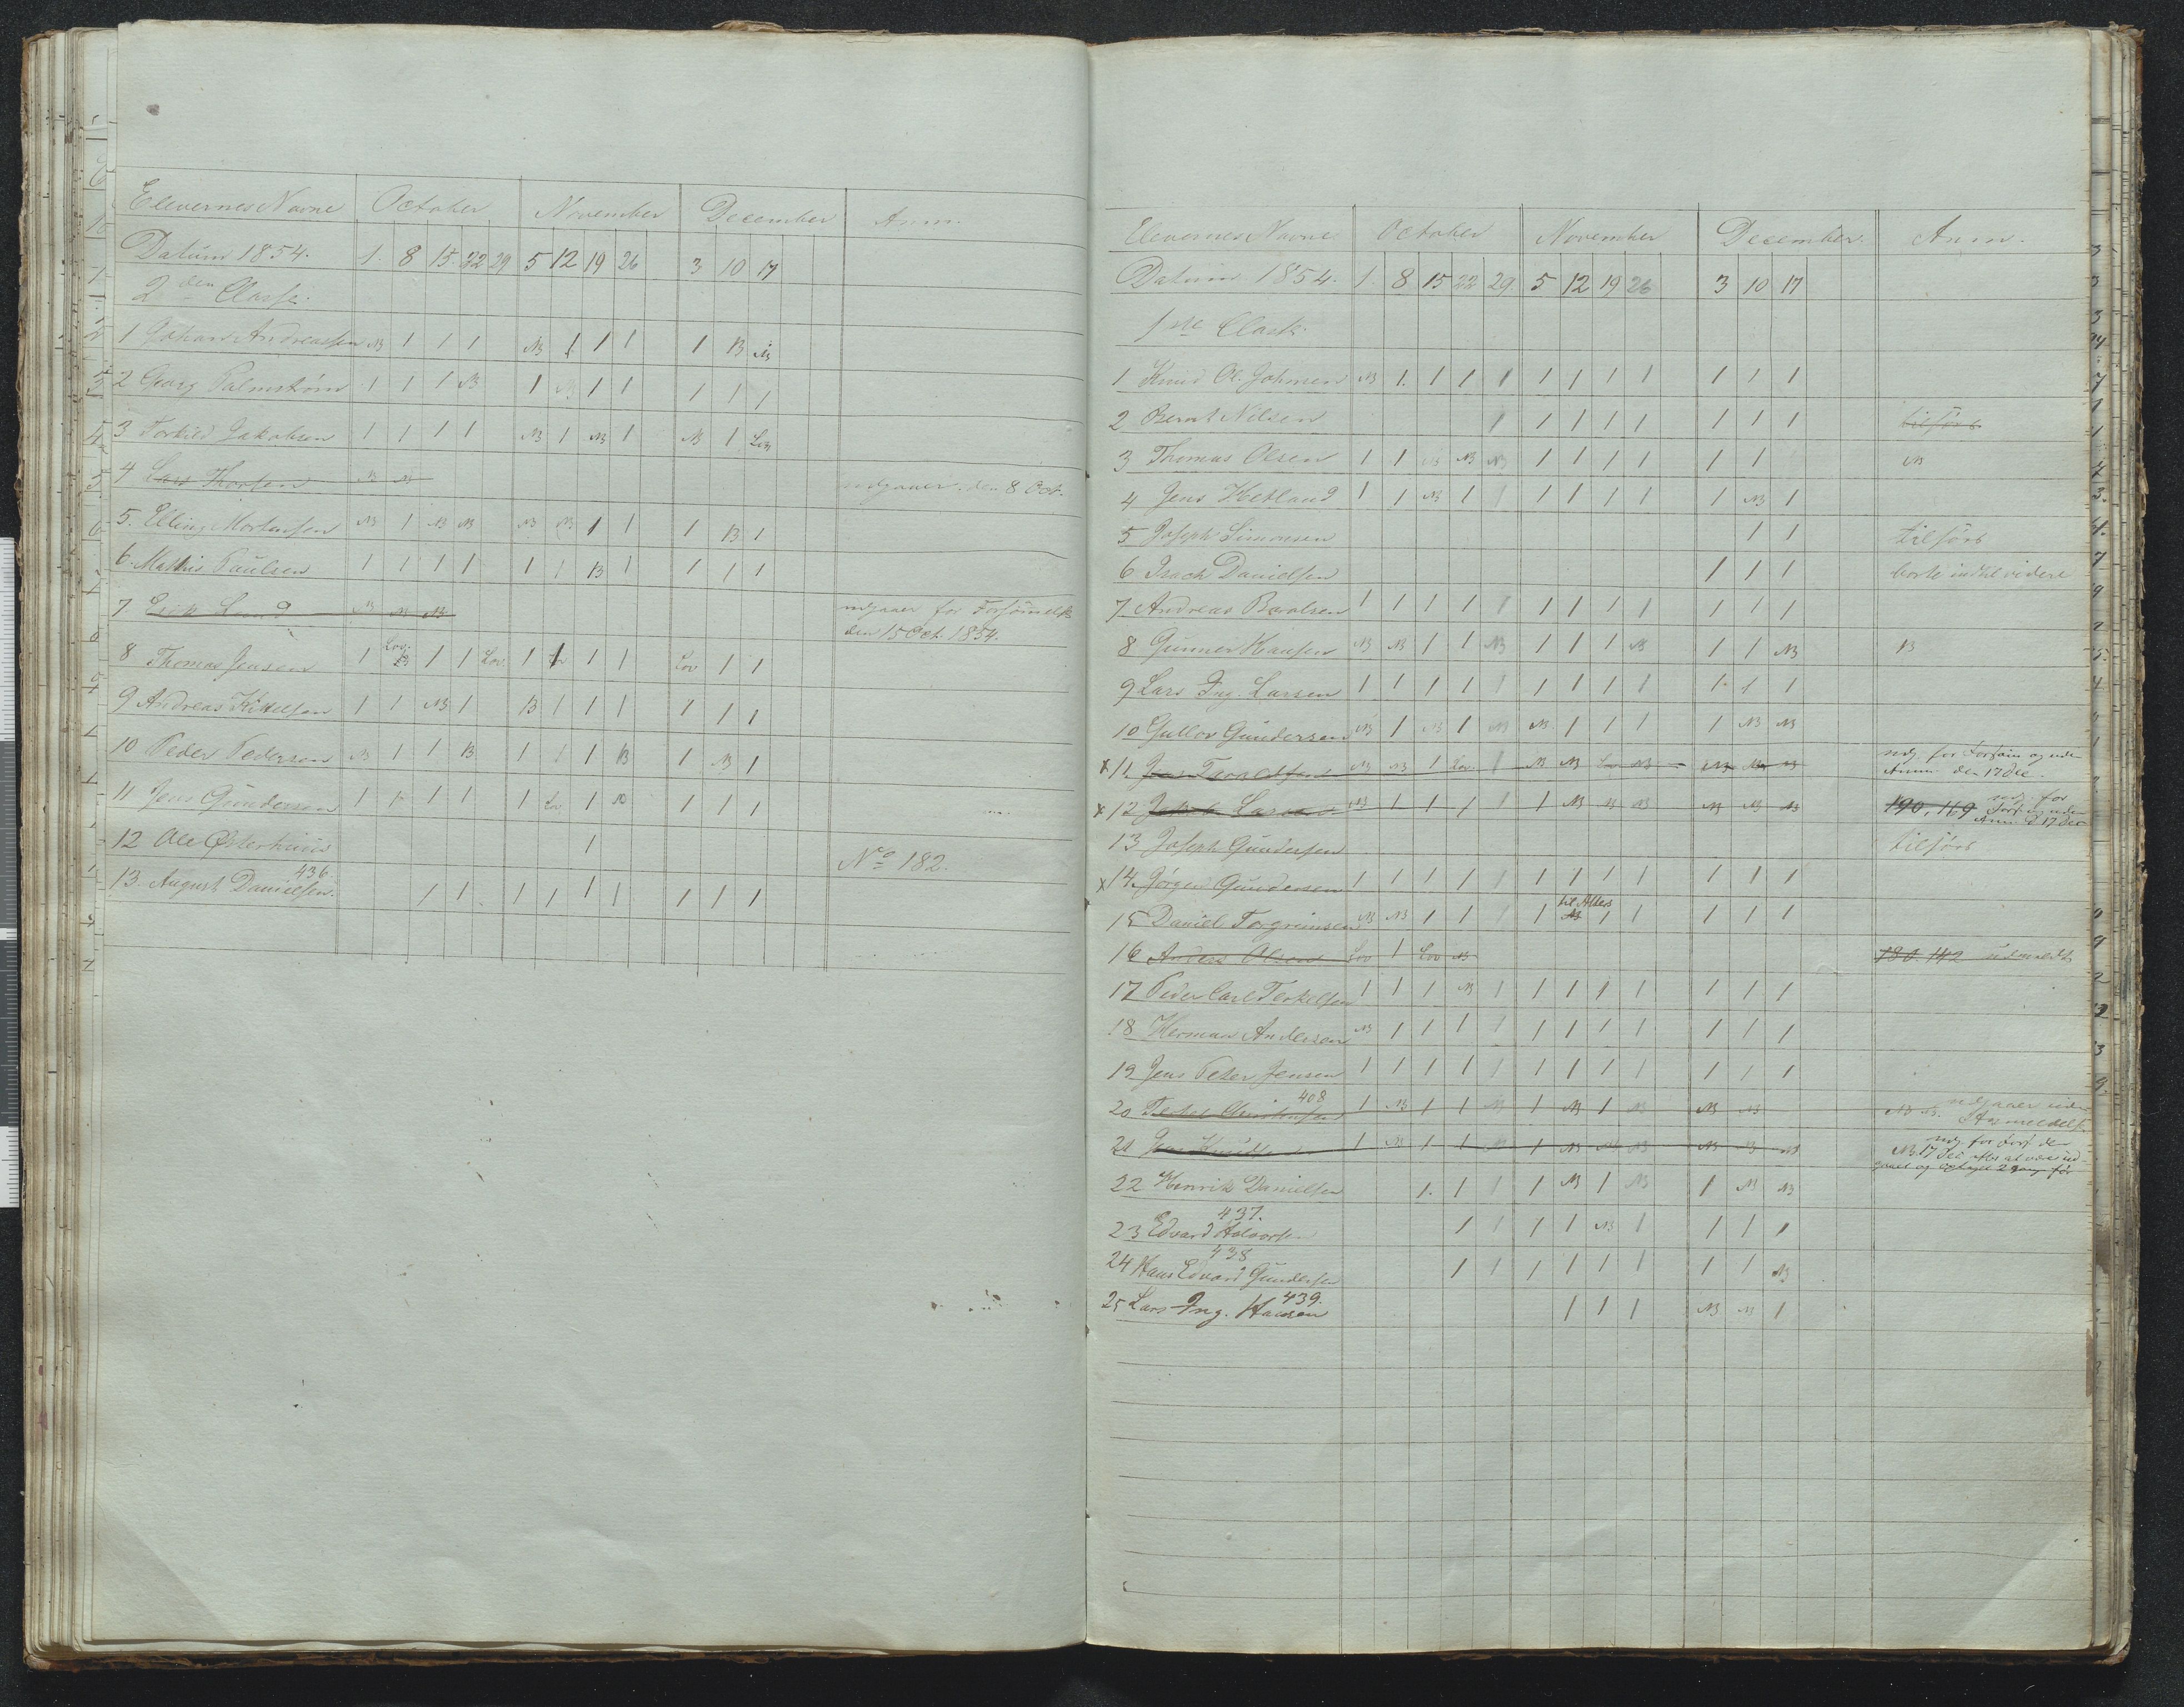 Elevernes Navne October November December Anm.
Datum 1854. 1. 8 15. 22 29 5 12 19 26 3 10 17
2den Classe.
1 Johan Andreassen NB 1 1 1 NB 1 1 1 1 B NB
2 Georg Palmstrøm 1 1 1 NB 1 NB 1 1 1 1 1
3 Torkild Jakobsen 1 1 1 1 NB 1 NB 1 NB 1 Lov
4 Lars Thorsen NB NB udgaaer den 8 Oct.
5. Elling Mortensen NB 1 NB NB NB NB 1 1 1 B 1
6. Mathis Paulsen 1 1 1 1 1 1 B 1 1 1 1
7. Erik Lund NB NB NB udgaaer for Forsømmelse
den 15 Oct. 1854.
8 Thomas Jensen 1 Lov. 1 1 Lov. 1 Lov 1 1 Lov 1 1
9 Andreas Kittelsen 1 1 NB 1 B 1 1 1 1 1 1
10 Peder Pedersen NB 1 1 B 1 1 1 B 1 NB 1
11 Jens Gundersen 1 1 1 1 1 Lov 1 1 1 1
12 Ole Østerhuus 1 No 182.
436
13. August Danielsen. 1 1 1 1 1 1 1 1 1
Elevernes Navne October November December Anm.
Datum 1854. 1. 8 15 22 29. 5 12 19 26 3 10 17
1ste Classe.
1 Knud Ol. Johnsen NB 1. 1 1 1 1 1 1 1 1 1 1
2 Bernt Nilsen 1 1 1 1 1 1 1 1 tilførs
3 Thomas Olsen 1 1 NB NB NB 1 1 1 1 1 1 NB
4 Jens Hetland 1 1 NB 1 1 1 1 1 1 1 NB 1
5 Joseph Simonsen 1 1 tilførs
6 Isach Danielsen 1 1 1 borte indtil videre
7 Andreas Boalsen 1 1 1 1 1 1 1 1 1 1 1 1
8 Gunner Hansen NB NB 1 1 NB 1 1 1 NB 1 1 NB B
9 Lars Ing. Larsen 1 1 1 1 1 1 1 1 1 1 1 1
10 Gullov Gundersen NB 1 NB 1 NB NB 1 1 1 1 NB NB
x 11. Jens NB NB 1 Lov. 1 NB NB Lov NB NB NB NB udg. for Forsøm og uden
Anm. den 17 Dec.
x 12 Jakob Larsen NB 1 1 1 1 1 NB NB NB NB NB NB 190, 169 udg. for
Fors. og uden
Anm d 17 Dec
13 Joseph Gundersen tilførs
x 14. Jørgen Gundersen 1 1 1 1 1 1 1 1 1 1 1 1
til Alters
15 Daniel Torgrimsen NB NB 1 1 1 1 NB 1 1 1 1 1
16 Anders Olsen Lov 1 Lov NB 180. 142 udmeldt
17 Peder Carl Terkelsen 1 1 1 NB 1 1 1 1 1 1 1 1
18 Herman Andersen NB 1 1 1 1 1 1 1 1 1 1 1
19 Jens Peter Jensen 1 1 1 1 1 1 1 1 1 1 1 1
408
20 Christensen 1 NB 1 1 NB 1 NB 1 NB NB NB NB NB. udgaaer uden
Anmeldelse
21 Jens 1 NB 1 1 NB 1 NB NB NB NB NB NB udg. for Fors den
NB 17 Dec efter at være ud
gaaet og optaget 2 gang før
22 Henrik Danielsen 1. 1 1 1 NB 1 NB 1 NB NB
437.
23 Edvard Halvorsen 1 1 1 1 NB 1 1 1 1
438
24 Hans Edvard Gundersen 1 1 1 1 1 1 1 1 NB
439.
25 Lars Ing. Hansen 1 1 1 NB NB 1